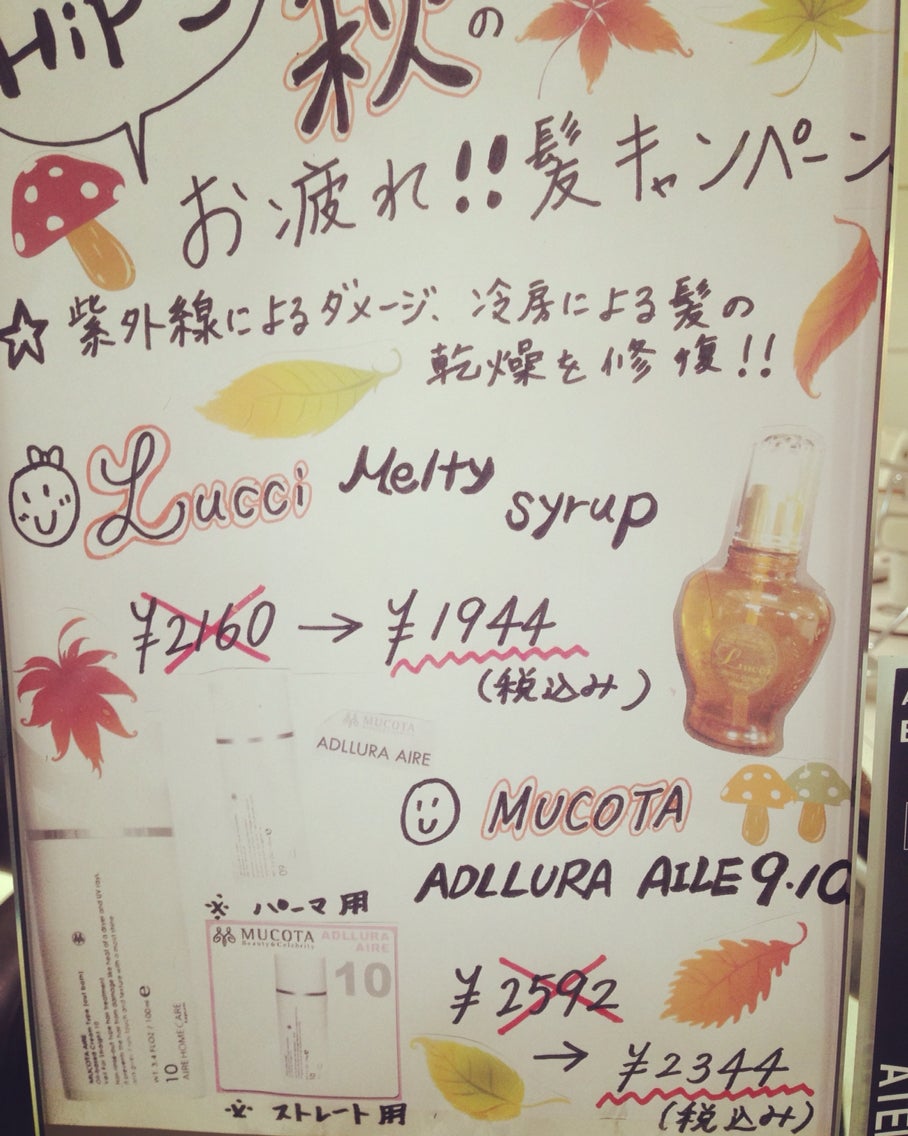 HiPニ
秋の
お疲れ!!髪キャンペーン
☆紫外線によるダメージ、冷房による髪の
乾燥を修復!!
Lucci Melty
syrup
¥2160→¥1944
(税込み)
Lucci
MUCOTA
ADLLURA AIRE
MUCOTA
ADLLURA AILE 9.10
※パーマ用
MUCOTA ADLLURA
Beauty&Celebrity AIRE
10
¥2592
→¥2344
(税込み)
※ストレート用
MUCOTA AIRE
WT 3.4 FL.OZ / 100ml e
10
AIRE HOMECARE
09